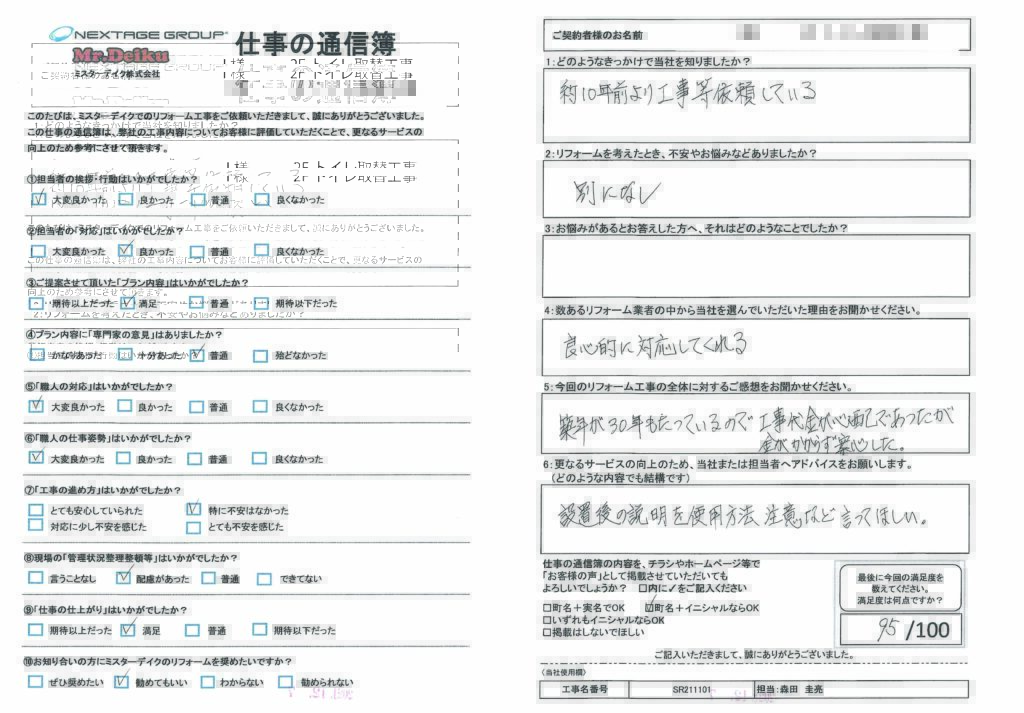 NEXTAGE GROUP
仕事の通信簿
Mr.Deiku
ミスターデイク株式会社
I 様 2F トイレ取替工事
このたびは、ミスターデイクでのリフォーム工事をご依頼いただきまして、誠にありがとうございました。
この仕事の通信簿は、弊社の工事内容についてお客様に評価していただくことで、更なるサービスの
向上のため参考にさせて頂きます。
I 様 2F トイレ取替工事
①担当者の挨拶・行動はいかがでしたか?
☑ 大変良かった □ 良かった □ 普通 □ 良くなかった
②担当者の「対応」はいかがでしたか?
□ 大変良かった ☑ 良かった □ 普通 □ 良くなかった
③ご提案させて頂いた「プラン内容」はいかがでしたか?
□ 期待以上だった ☑ 満足 □ 普通 □ 期待以下だった
④プラン内容に「専門家の意見」はありましたか?
□ かなりあった □ 十分あった ☑ 普通 □ 殆どなかった
⑤「職人の対応」はいかがでしたか?
☑ 大変良かった □ 良かった □ 普通 □ 良くなかった
⑥「職人の仕事姿勢」はいかがでしたか?
☑ 大変良かった □ 良かった □ 普通 □ 良くなかった
⑦「工事の進め方」はいかがでしたか?
□ とても安心していられた ☑ 特に不安はなかった
□ 対応に少し不安を感じた □ とても不安を感じた
⑧現場の「管理状況整理整頓等」はいかがでしたか?
□ 言うことなし ☑ 配慮があった □ 普通 □ できてない
⑨「仕事の仕上がり」はいかがでしたか?
□ 期待以上だった ☑ 満足 □ 普通 □ 期待以下だった
⑩お知り合いの方にミスターデイクのリフォームを奨めたいですか?
□ ぜひ奨めたい ☑ 勧めてもいい □ わからない □ 勧められない
ご契約者様のお名前
1:どのようなきっかけで当社を知りましたか?
約10年前より工事等依頼している
2:リフォームを考えたとき、不安やお悩みなどありましたか?
別になし
3:お悩みがあるとお答えした方へ、それはどのようなことでしたか?
4:数あるリフォーム業者の中から当社を選んでいただいた理由をお聞かせください。
良心的に対応してくれる
5:今回のリフォーム工事の全体に対するご感想をお聞かせください。
築年が30年もたっているので工事代金が心配であったが
金がかからず安心した。
6:更なるサービスの向上のため、当社または担当者へアドバイスをお願いします。
(どのような内容でも結構です)
設置後の説明を使用方法 注意など言ってほしい。
仕事の通信簿の内容を、チラシやホームページ等で
「お客様の声」として掲載させていただいても
よろしいでしょうか? □内に✓をご記入ください
□町名+実名でOK ☑町名+イニシャルならOK
□いずれもイニシャルならOK
□掲載はしないでほしい
最後に今回の満足度を
教えてください。
満足度は何点ですか?
95 /100
ご記入いただきまして、誠にありがとうございました。
(当社使用欄)
工事名番号 SR211101 担当:森田 圭亮